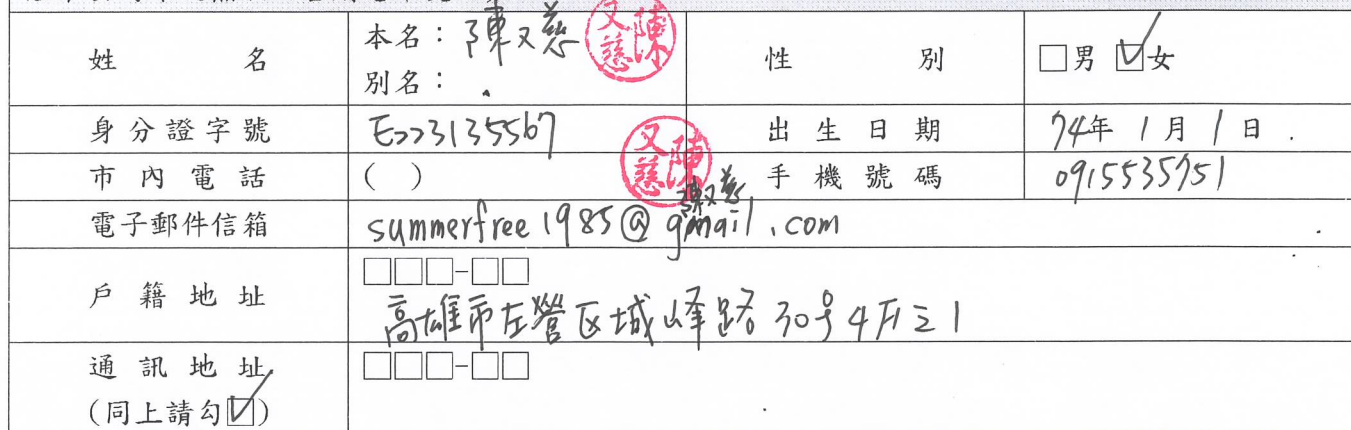 姓名 本名：陳又慈 陳又慈 性別 □男 ☑女
別名：
身分證字號 E223135567 出生日期 74年1月1日
陳又慈
市內電話 ( ) 手機號碼 0915535751
陳又慈
電子郵件信箱 summerfree1985@gmail.com
戶籍地址 □□□-□□
高雄市左營区城峰路30号4F之1
通訊地址 □□□-□□
(同上請勾☑)